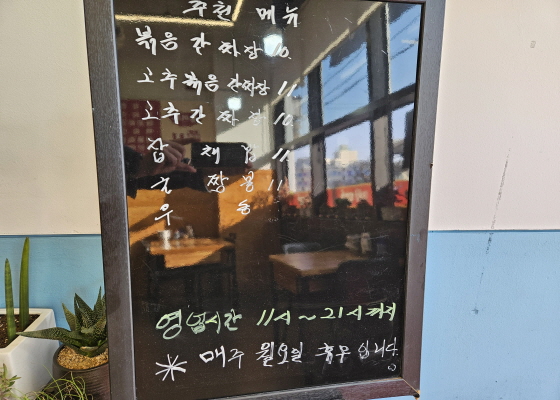 추천 메뉴
볶음 간 짜장 10.
고추볶음 간짜장 11.
고추 간 짜 장 10.
잡 채 밥 11.
굴 짬 뽕 11.
우 동
영업시간 11시 ~ 21시 까지
* 매주 월요일 휴무 입니다.